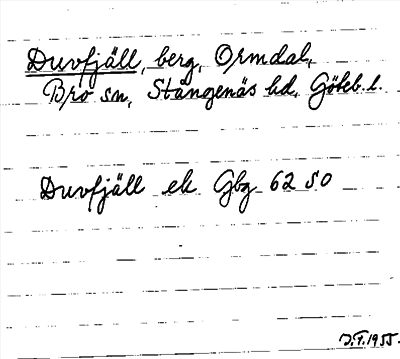 Duvfjäll, berg, Ormdal,
Bro sn, Stångenäs hd, Göteb. l.
Duvfjäll ek Gbg 62 SO
J.F. 1955.